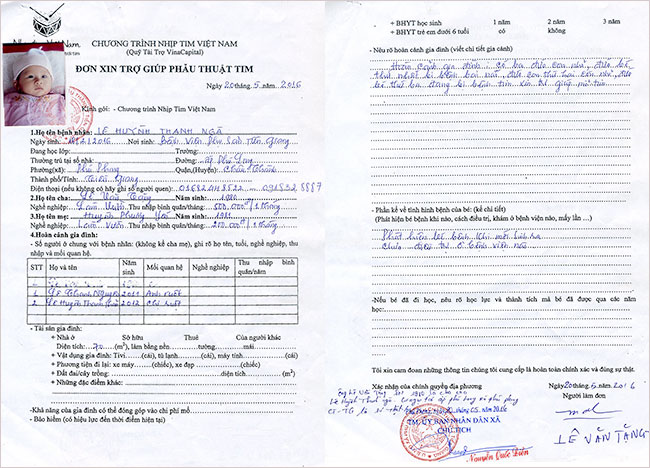 CHƯƠNG TRÌNH NHỊP TIM VIỆT NAM
(Quỹ Tài Trợ VinaCapital)
ĐƠN XIN TRỢ GIÚP PHẪU THUẬT TIM
Ngày 20 tháng 5 năm 2016
Kính gởi: - Chương trình Nhịp Tim Việt Nam
1.Họ tên bệnh nhân: LÊ HUỲNH THANH NGÃ
Ngày sinh: 2016 Nơi sinh: Bệnh Viện Phụ Sản Tiền Giang
Đang học lớp: Trường:
Thường trú tại số nhà: Đường: Ấp Phú
Phường(xã): Phú Phong Quận,(Huyện): Châu Thành
Thành phố/Tỉnh: Tiền Giang
Điện thoại (nếu không có hãy ghi số người quen):
2.Họ tên cha: Lê Văn Tăng Năm sinh: 1980
Nghề nghiệp: Làm Vườn Thu nhập bình quân/tháng: 500.000đ/1 tháng
3.Họ tên mẹ: Huỳnh Phương Năm sinh: 1981
Nghề nghiệp: Làm Vườn Thu nhập bình quân/tháng: 200.000đ/1 tháng
4.Hoàn cảnh gia đình:
- Số người ở chung với bệnh nhân: (không kể cha mẹ), ghi rõ họ tên, tuổi, nghề nghiệp, thu
nhập và mối quan hệ.
STT Họ và tên Năm sinh Mối quan hệ Nghề nghiệp Thu nhập bình quân/năm
1 Lê Thành 2011 Anh ruột
2 Lê Huỳnh Thanh 2012 Chị ruột
- Tài sản gia đình:
+ Nhà ở Sở hữu Thuê Của người khác
Diện tích: 70 (m²), làm bằng nền tường mái
+ Vật dụng gia đình: Tivi (cái), tủ lạnh (cái), máy tính (cái)
+ Phương tiện đi lại: xe máy (chiếc), xe đạp (chiếc)
+ Đất đai/cây trồng: diện tích (m²)
+ Những đặc điểm khác:
-Khả năng của gia đình có thể đóng góp vào chi phí mổ
- Bảo hiểm (có hiệu lực đến thời điểm hiện tại)
+ BHYT học sinh 1 năm 2 năm 3 năm
+ BHYT trẻ em dưới 6 tuổi có không
- Nêu rõ hoàn cảnh gia đình (viết chi tiết gia cảnh)
Hoàn cảnh gia đình có ba đứa con nhỏ, đứa bé
thứ nhất bị bệnh đứa con thứ hai còn nhỏ, đứa
bé thứ ba đang bị bệnh tim xin giúp mổ tim
- Phần kể về tình hình bệnh của bé: (kể chi tiết)
(Phát hiện bé bệnh khi nào, cách điều trị, khám ở bệnh viện nào, mấy lần ...)
Phát hiện bé bệnh khi mới sinh ra
chưa điều trị ở bệnh viện nào
-Nếu bé đã đi học, nêu rõ học lực và thành tích mà bé đã được qua các năm
học:
Tôi xin cam đoan những thông tin chúng tôi cung cấp là hoàn toàn chính xác và đúng sự thật.
Xác nhận của chính quyền địa phương Ngày 20 tháng 5 năm 2016
Người làm đơn
TM. ỦY BAN NHÂN DÂN XÃ
CHỦ TỊCH
LÊ VĂN TĂNG